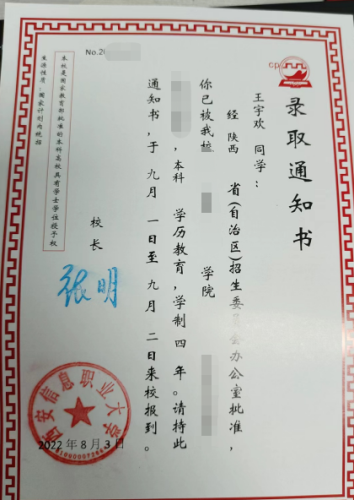 录取通知书
王宇欢 同学：
经 陕西 省(自治区)招生委员会办公室批准，
你已被我校 学院
，本科 学历教育，学制四年。请持此
通知书，于 九月 一日至 九月 二日来校报到。
校长
张明
西安信息职业大学
2022年8月3日
本校是国家教育部批准的本科高校具有学士学位授予权
生源性质：国家计划内统招
No.20